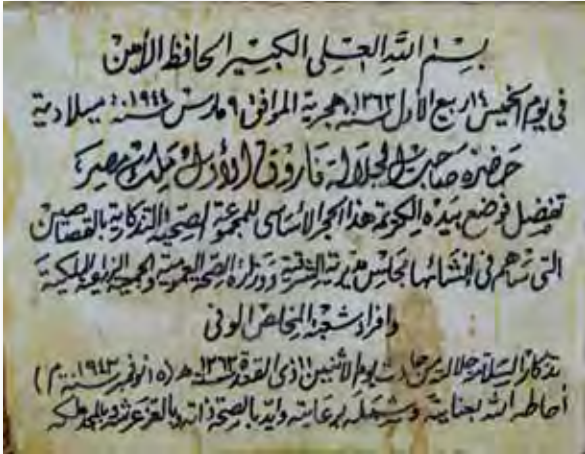 بسم الله العلى الكبير الحافظ الأمين
فى يوم الخميس ١٤ ربيع الأول سنة ١٣٦٣ هجرية الموافق ٩ مارس سنة ١٩٤٤ ميلادية
حضرة صاحب الجلالة فاروق الأول ملك مصر
تفضل فوضع بيده الكريمة هذا الحجر الأساسى للمجموعة الصحية التذكارية بالقصاصين
التى ساهم فى إنشائها مجلس مديرية الشرقية ووزارة الصحة العمومية والجمعية الزراعية الملكية
وأفراد شعبه المخلص الوفى
تذكارا لسلامة جلالته من حادث يوم الأثنين ١١ ذى القعدة سنة ١٣٦٢ ه (١٥ نوفمبر سنة ١٩٤٣ م)
أحاطه الله بعنايته وشمله برعايته وأيد بالصحة ذاته وبالعز عرشه وبالمجد ملكه